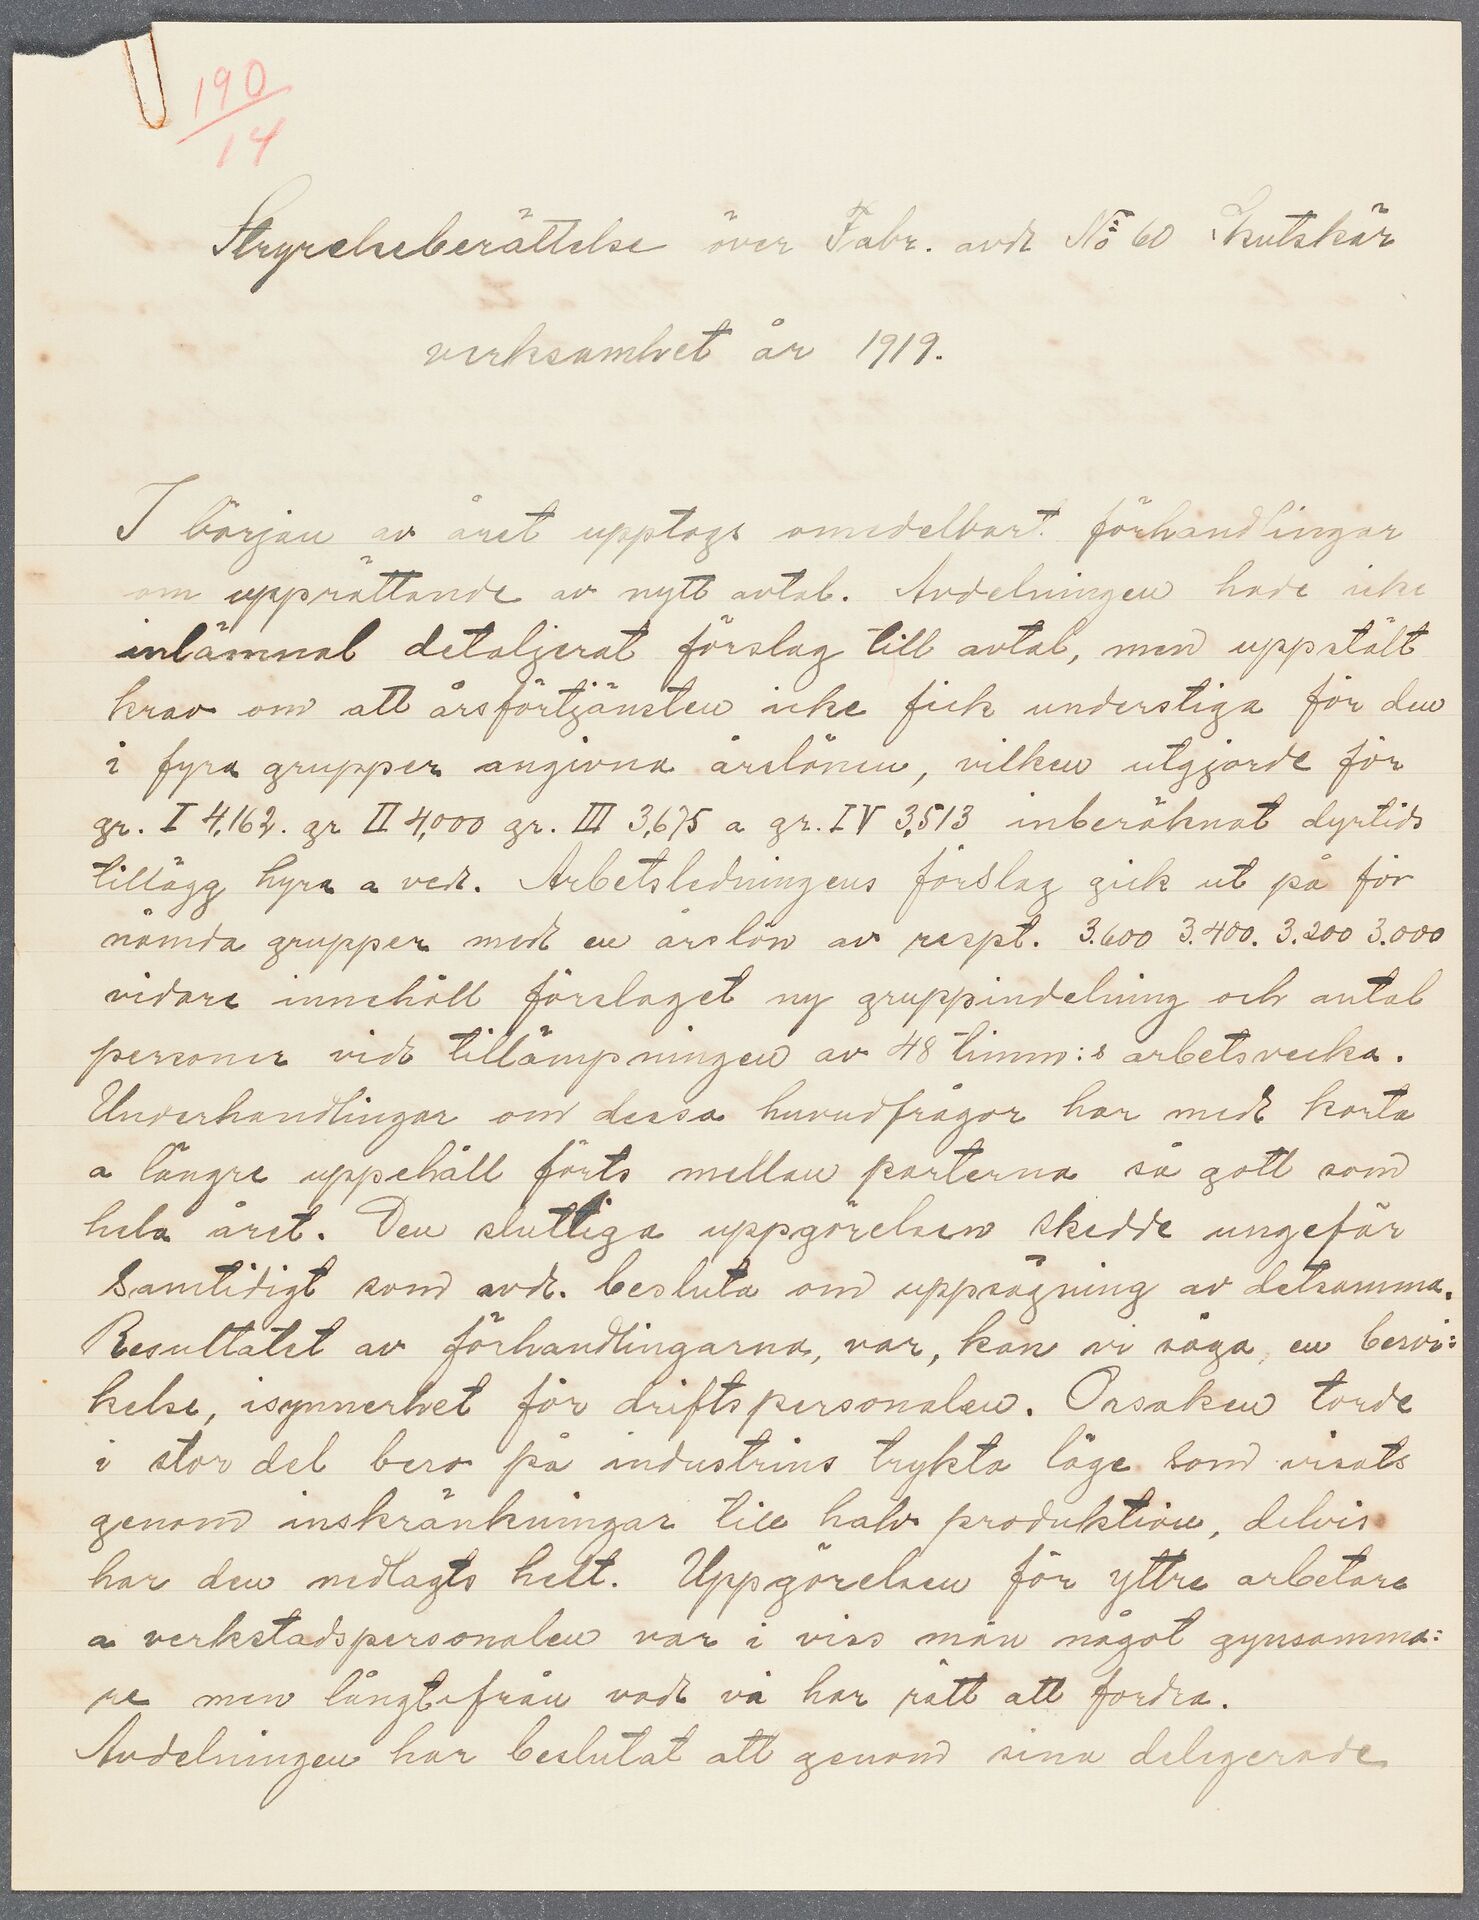 190
14
Styrelseberättelse över Fabr. avd No 60 Skutskär
verksamhet år 1919.
I början av året upptogs omedelbart förhandlingar
om upprättande av nytt avtal. Avdelningen hade icke
inlämnat detaljerat förslag till avtal, men uppstält
krav om att årsförtjänsten icke fick understiga för den
i fyra grupper angivna årslönen, vilken utgjorde för
gr. I 4,162. gr II 4,000 gr. III 3,675 a gr. IV 3,513 inberäknat dyrtids
tillägg hyra a ved. Arbetsledningens förslag gick ut på för
nämda grupper med en årslön av respt. 3.600 3.400. 3.200 3.000
vidare innehöll förslaget ny gruppindelning och antal
personer vid tillämpningen av 48 timm:s arbetsvecka.
Underhandlingar om dessa huvudfrågor har med korta
a längre uppehåll förts mellan parterna så gott som
hela året. Den slutliga uppgörelsen skedde ungefär
samtidigt som avd. besluta om uppsägning av detsamma.
Resultatet av förhandlingarna, var, kan vi säga, en besvi:
kelse, isynnerhet för driftspersonalen. Orsaken torde
i stor del bero på industrins trykta läge som visats
genom inskränkningar till halv produktion, delvis
har den nedlagts helt. Uppgörelsen för yttre arbetare
a verkstadspersonalen var i viss mån något gynsamma:
re men långtifrån vad vi har rätt att fordra.
Avdelningen har beslutat att genom sina delegerade